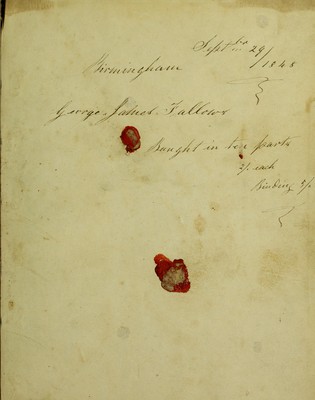 Septber 29/
Birmingham 1848
George James Fallows
Bought in ten parts
2/. each
Binding 2/.